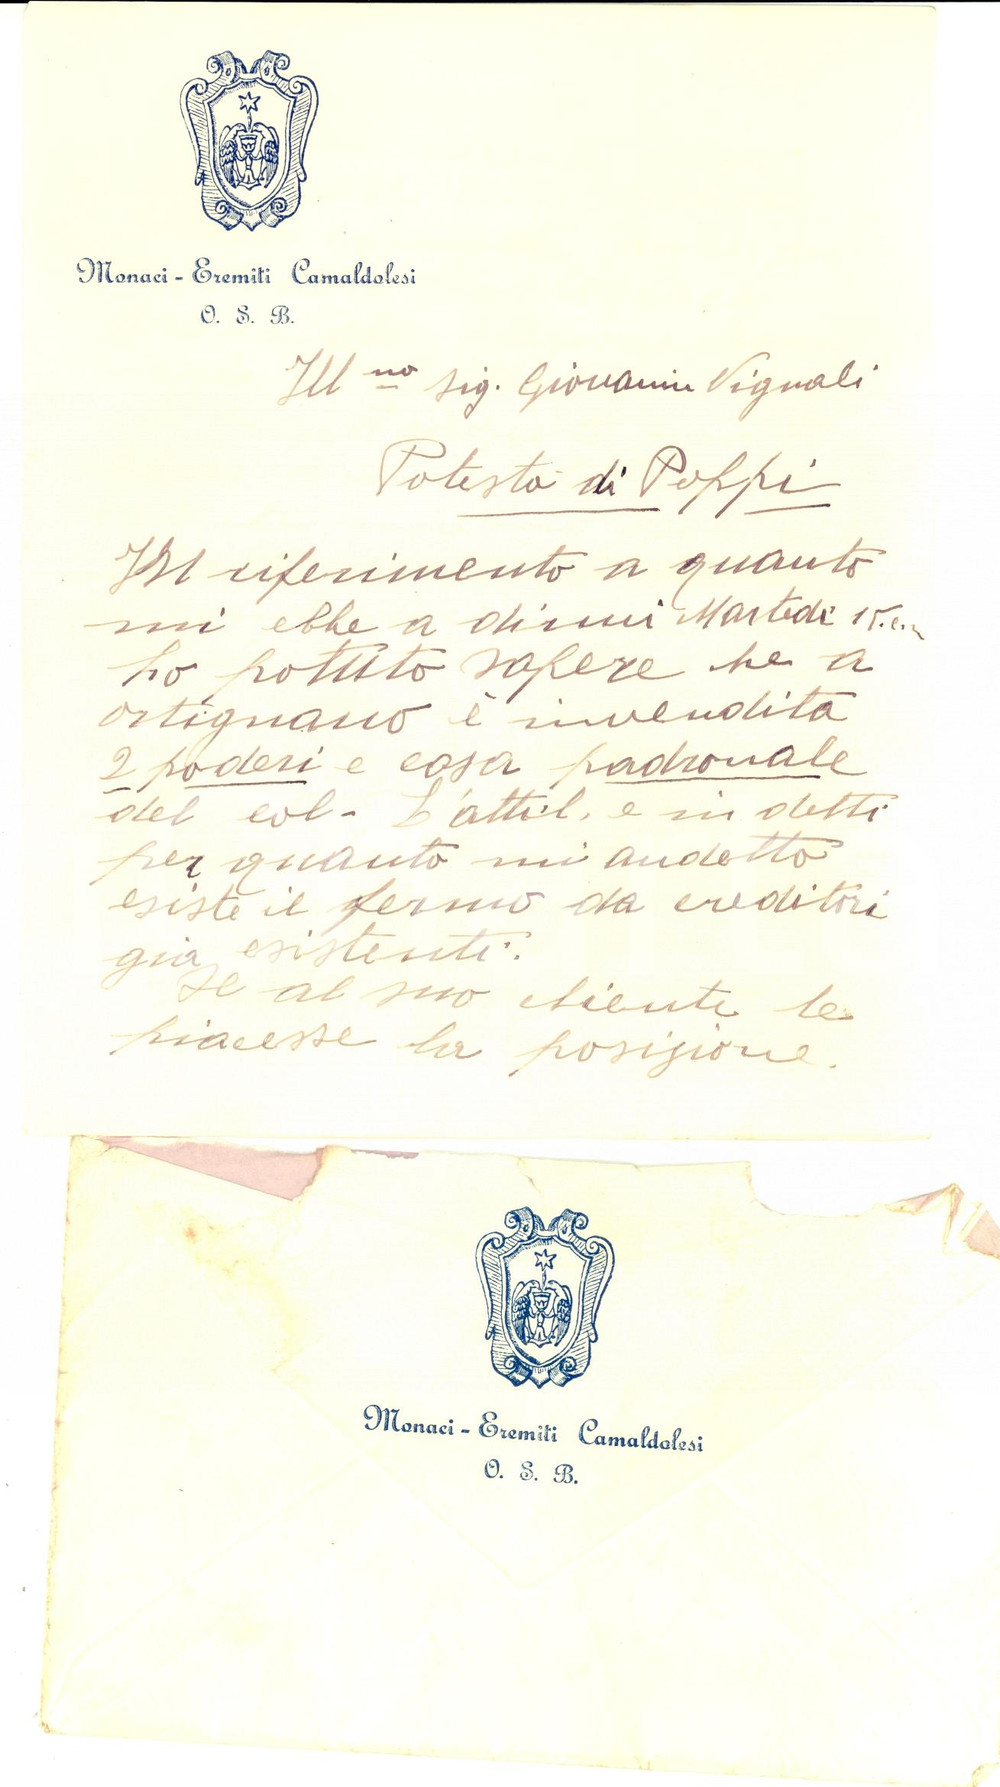 Monaci - Eremiti Camaldolesi
O. S. B.
Ill no Sig. Giovanni Vignali
Potestà di Poppi
In riferimento a quanto
mi ebbe a dirmi Martedì 15. c.m
ho potuto sapere che a
ortignano è invendita
2 poderi e casa padronale
del col - L'attil. e in detti
per quanto mi andetto
esiste il fermo da creditori
già esistenti.
Se al suo cliente le
piacesse la posizione.
Monaci - Eremiti Camaldolesi
O. S. B.